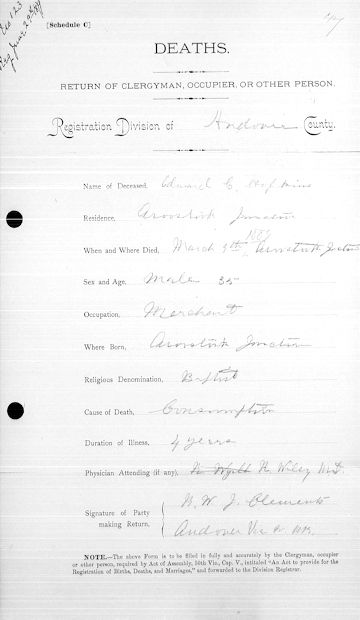 [Schedule C]
DEATHS.
RETURN OF CLERGYMAN, OCCUPIER, OR OTHER PERSON.
Registration Division of Andover County.
Name of Deceased, Edward C. Hopkins
Residence, Aroostook Junction
When and Where Died, March 9th, 1889, Aroostook Junction
Sex and Age, Male 35
Occupation, Merchant
Where Born, Aroostook Junction
Religious Denomination, Baptist
Cause of Death, Consumption
Duration of Illness, 4 years
Physician Attending (if any), Wiley M.D.
Signature of Party W. J. Clements
making Return, Andover
NOTE.—The above Form is to be filed in fully and accurately by the Clergyman, occupier
or other person, required by Act of Assembly, 50th Vic., Cap. V., intituled "An Act to provide for the
Registration of Births, Deaths, and Marriages," and forwarded to the Division Registrar.